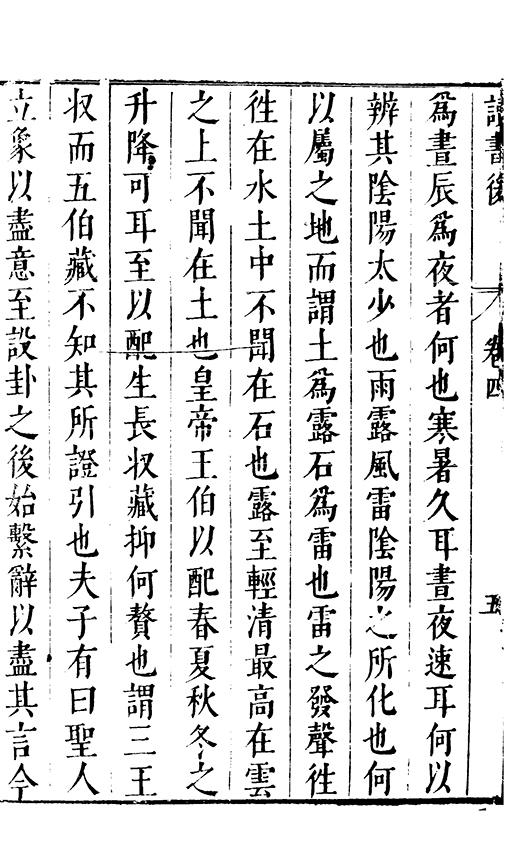 讀書後 卷四 五
爲晝辰爲夜者何也寒暑久耳晝夜速耳何以
辨其陰陽太少也雨露風雷陰陽之所化也何
以屬之地而謂土爲露石爲雷也雷之發聲徃
徃在水土中不聞在石也露至輕清最高在雲
之上不聞在土也皇帝王伯以配春夏秋冬之
升降可耳至以配生長収藏抑何贅也謂三王
収而五伯藏不知其所證引也夫子有曰聖人
立象以盡意至設卦之後始繫辭以盡其言今